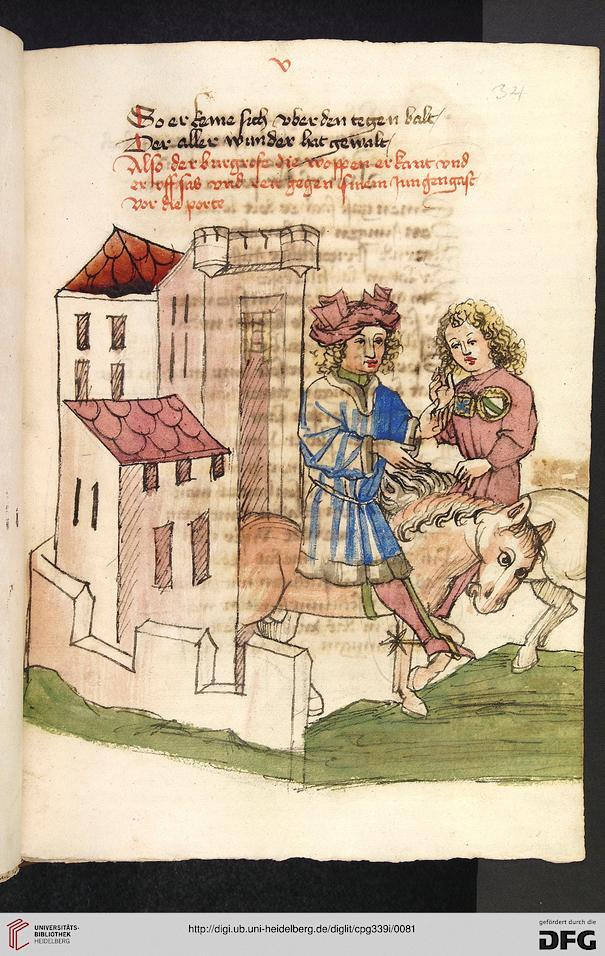 v
34
So er keme sich vber den tegen balt
Der aller wunder hat gewalt
Also der burgrofe die woppen erkant vnd
er vff sas vnd reit gegen sinem jungen gast
vor die porte
UNIVERSITÄTS-
BIBLIOTHEK
HEIDELBERG
http://digi.ub.uni-heidelberg.de/diglit/cpg339i/0081
gefördert durch die
DFG